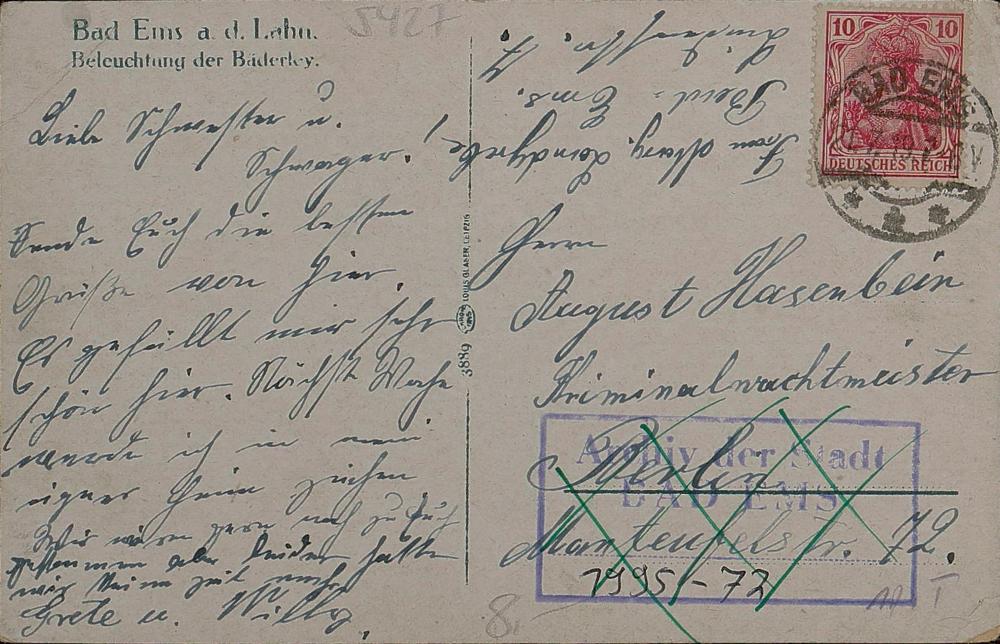 Bad Ems a. d. Lahn.
Beleuchtung der Bäderley.
5427
Liebe Schwester u.
Schwager.!
Sende Euch die besten
Grüße von hier.
Es gefällt mir sehr
schön hier. Nächst Woche
werde ich in mein
eigenes Heim ziehen
Wir wären gern noch zu Euch
gekommen aber leider hatten
wir keine zeit mehr.
Grete u. Willy.
3889
LOUIS GLASER, LEIPZIG
Frau
Bad-Ems.
10 10
DEUTSCHES REICH
BAD EMS
Herrn
August Hasenbein
Kriminalwachtmeister
Berlin
Manteufelstr. 72.
Archiv der Stadt
BAD EMS
1995-72
8.